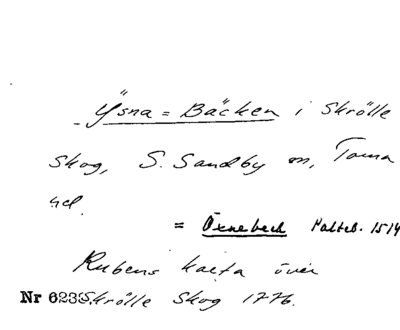 Ÿsna = Bäcken i Skrölle
Skog, S. Sandby sn, Torna
hd.
= Öxnebeck Palteb. 1514
Rubens karta över
Nr 6233. Skrölle Skog 1776.